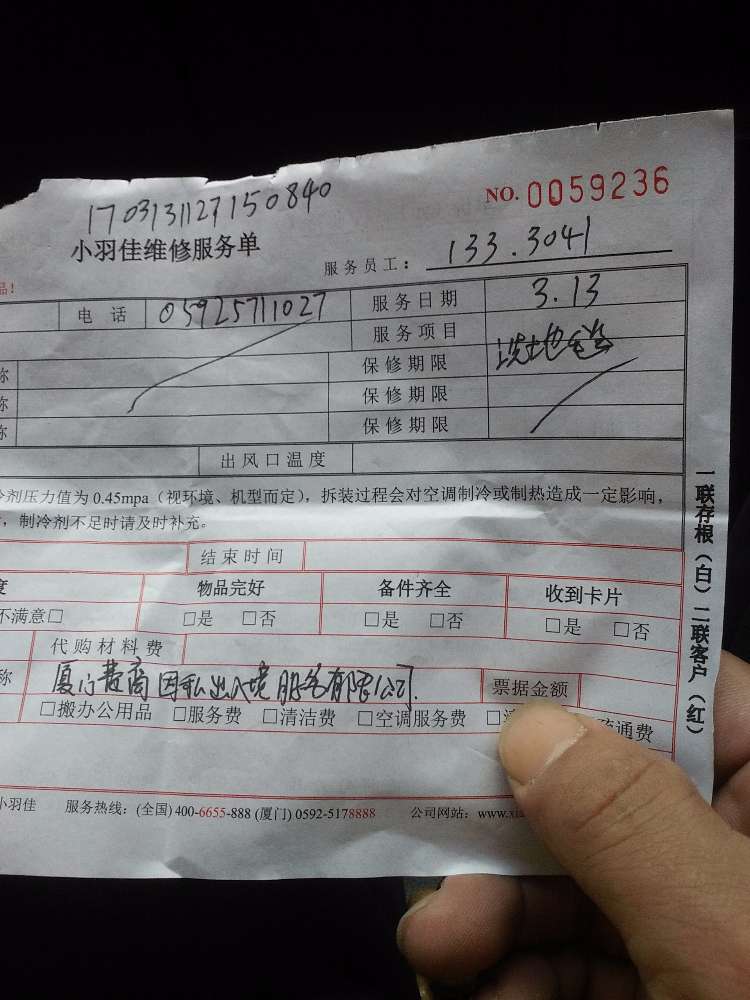 1703131127150840
NO. 0059236
小羽佳维修服务单
服务员工： 133.3041
品！
电 话 05925711027 服务日期 3.13
服务项目 洗地毯
称 保修期限
称 保修期限
称 保修期限
出风口温度
冷剂压力值为0.45mpa（视环境、机型而定），拆装过程会对空调制冷或制热造成一定影响，
，制冷剂不足时请及时补充。
结束时间
度 物品完好 备件齐全 收到卡片
不满意□ □是 □否 □是 □否 □是 □否
代购材料费
称 厦门 商因私出入境服务有限公司. 票据金额
□搬办公用品 □服务费 □清洁费 □空调服务费 □ 疏通费
小羽佳 服务热线：(全国) 400-6655-888 (厦门) 0592-5178888 公司网站：www.xia
一联存根（白）二联客户（红）